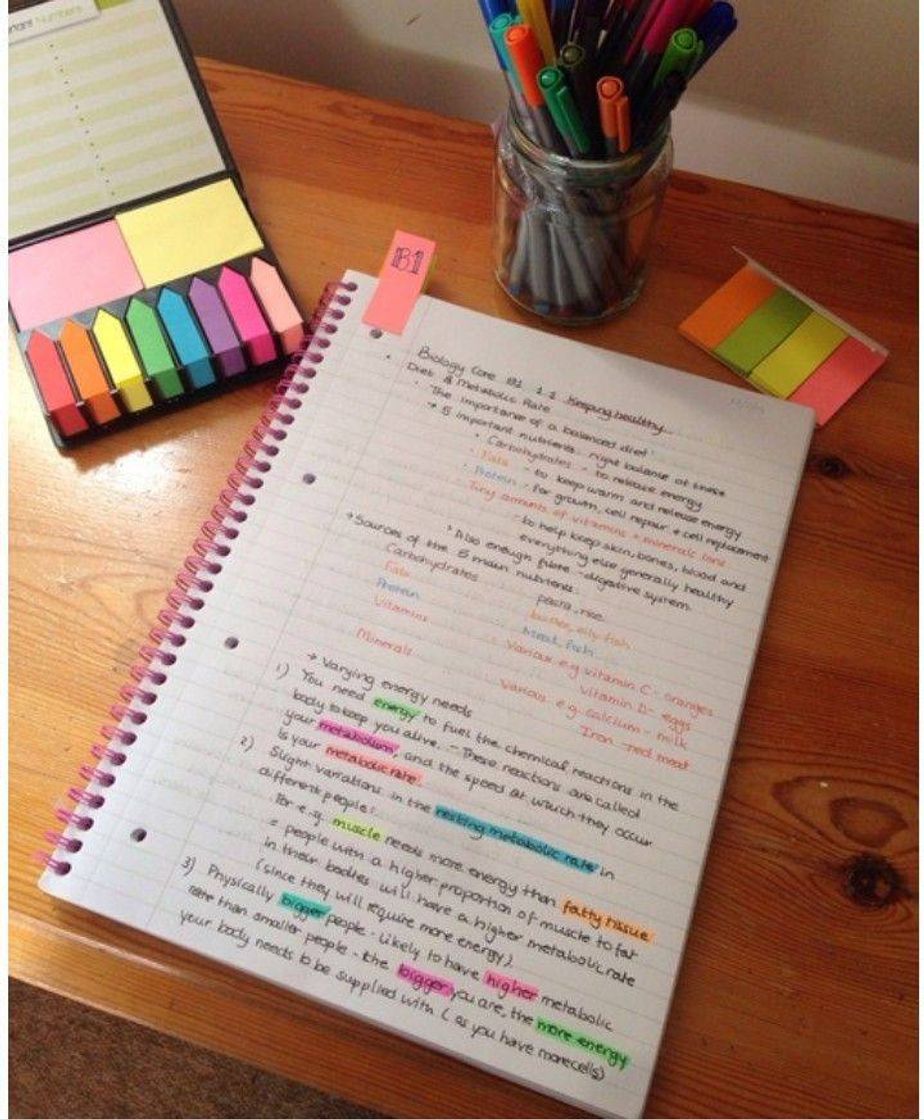 Numbers
B1
Biology Core B1 1.1 Keeping healthy
Diet & Metabolic Rate
• The importance of a balanced diet:
→ 5 important nutrients: right balance of these
• Carbohydrates - to release energy
• Fats - to keep warm and release energy
• Protein - for growth, cell repair + cell replacement
• Tiny amounts of vitamins + minerals ions
- to help keep skin, bones, blood and
everything else generally healthy
* Also enough fibre - digestive system.
→ Sources of the 5 main nutrients:
Carbohydrates pasta, rice
Fats butter, oily fish
Protein Meat, fish
Vitamins Various e.g vitamin C - oranges
Vitamin D - eggs
Minerals Various e.g. calcium - milk
Iron - red meat
→ Varying energy needs
1) You need energy to fuel the chemical reactions in the
body to keep you alive. - These reactions are called
your metabolism, and the speed at which they occur
is your metabolic rate.
2) Slight variations in the resting metabolic rate in
different people:
for e.g. muscle needs more energy than fatty tissue
= people with a higher proportion of muscle to fat
in their bodies will have a higher metabolic rate
(since they will require more energy).
3) Physically bigger people - likely to have higher metabolic
rate than smaller people - the bigger you are, the more energy
your body needs to be supplied with (as you have more cells)